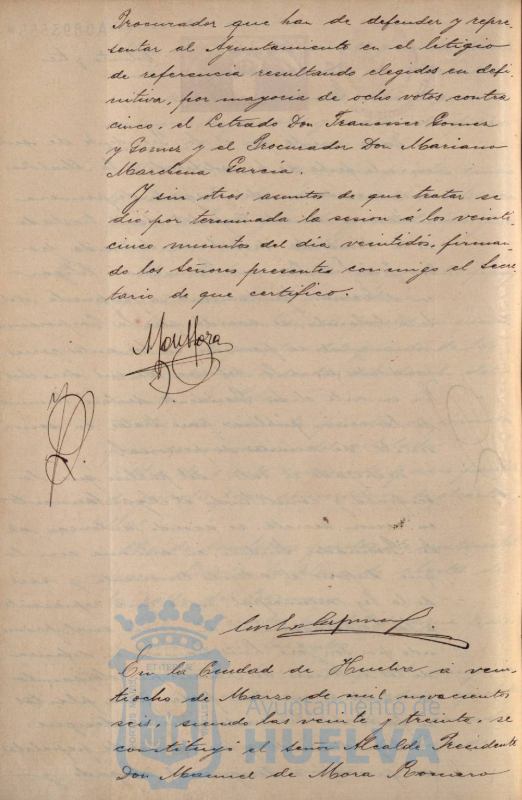 Procurador que han de defender y repre-
sentar al Ayuntamiento en el litigio
de referencia resultando elegidos en defi-
nitiva, por mayoria de ocho votos contra
cinco, el Letrado Don Francisco Gomez
y Gomez y el Procurador Don Mariano
Marchena García.
Y sin otros asuntos de que tratar se
dió por terminada la sesion á los veinti-
cinco minutos del dia veintidós, firman-
do los Señores presentes conmigo el Secre-
tario de que certifico.
M. de Mora
En la Ciudad de Huelva á vein-
tiocho de Marzo de mil novecientos
seis, siendo las veinte y treinta, se
constituyó el Señor Alcalde Presidente
Don Manuel de Mora Romero
Ayuntamiento de
HUELVA